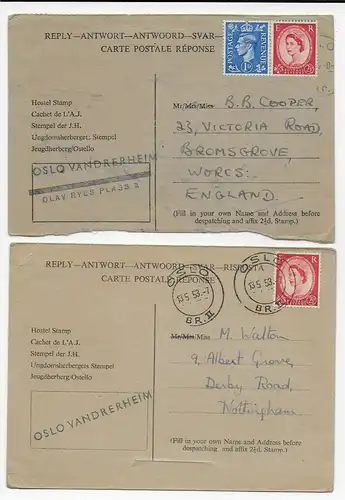 REPLY—ANTWORT—ANTWOORD—SVAR—
CARTE POSTALE RÉPONSE
POSTAGE REVENUE
1D
E R
Hostel Stamp
Cachet de L'A.J.
Stempel der J.H.
Ungdomsherbergets Stempel
Jeugdherberg/Ostello
OSLO VANDRERHEIM
OLAV RYES PLASS 2
Mr/Mrs/Miss B. B. COOPER,
23, VICTORIA ROAD,
BROMSGROVE,
WORCS:-
ENGLAND.
(Fill in your own Name and Address before
despatching and affix 2½d. Stamp.)
REPLY—ANTWORT—ANTWOORD—SVAR—RISPOSTA
CARTE POSTALE RÉPONSE
OSLO
13.5.53.-7
BR.II
OSLO
13.5.53
BR.
E R
Hostel Stamp
Cachet de L'A.J.
Stempel der J.H.
Ungdomsherbergets Stempel
Jeugdherberg/Ostello
OSLO VANDRERHEIM
Mr/Mrs/Miss M. Walton
9, Albert Grove,
Derby Road,
Nottingham
(Fill in your own Name and Address before
despatching and affix 2½d. Stamp.)